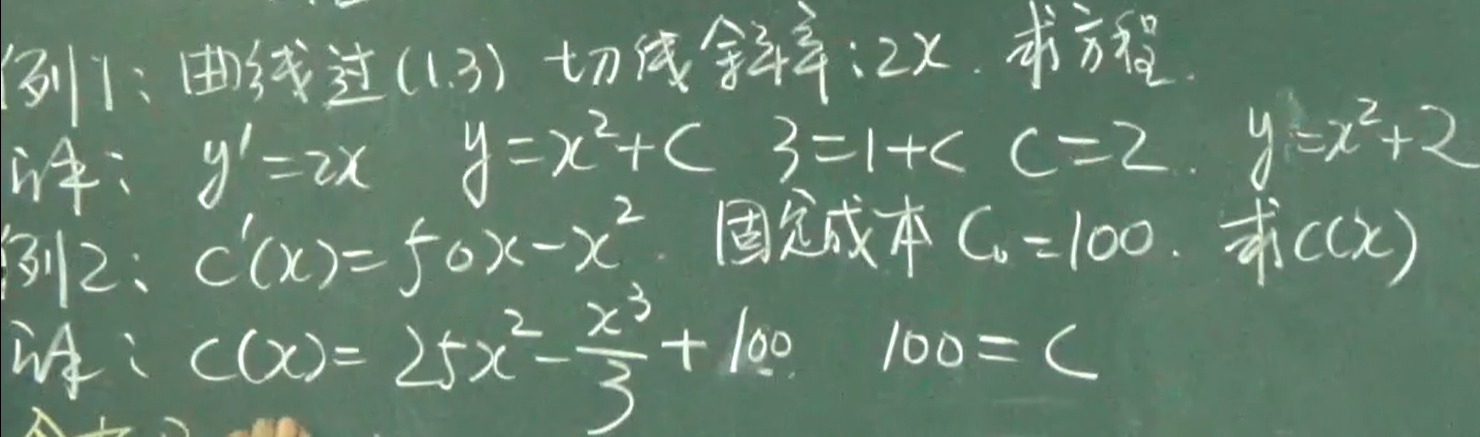 例1: 曲线过(1.3) 切线斜率:2x. 求方程.
解: y'=2x y=x²+C 3=1+C C=2. y=x²+2
例2: C'(x)=50x-x². 固定成本C₀=100. 求C(x)
解: C(x)=25x²-x³/3+100 100=C